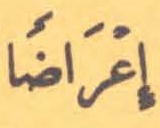 إِعْرَاضًا